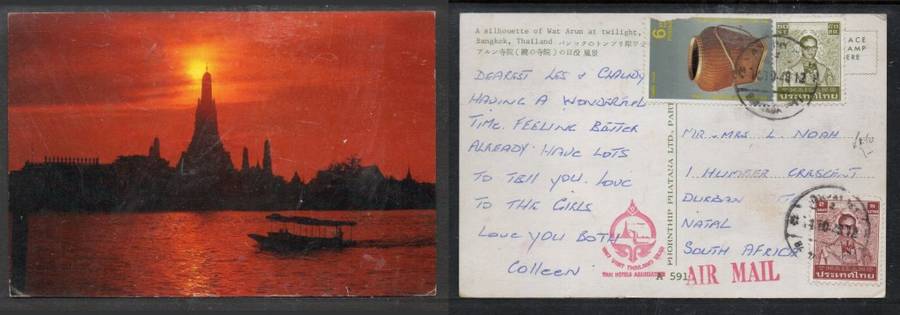 A silhouette of Wat Arun at twilight,
Bangkok, Thailand バンコクのトンブリ
アルン寺院(暁の寺院)の日没 風景
DEAREST LES &
HAVING A WONDERFUL
TIME. FEELING BETTER
ALREADY. HAVE LOTS
TO TELL YOU. LOVE
TO THE GIRLS
LOVE YOU BOTH
Colleen
PHORNTHIP PHATANA LTD., PART
A 591
THAI HOTELS ASSOCIATION
AIR MAIL
PLACE
STAMP
HERE
MR. MRS L. NOAH
1 HUMMER CRESCENT
DURBAN
NATAL
SOUTH AFRICA
6
ประเทศไทย
ประเทศไทย